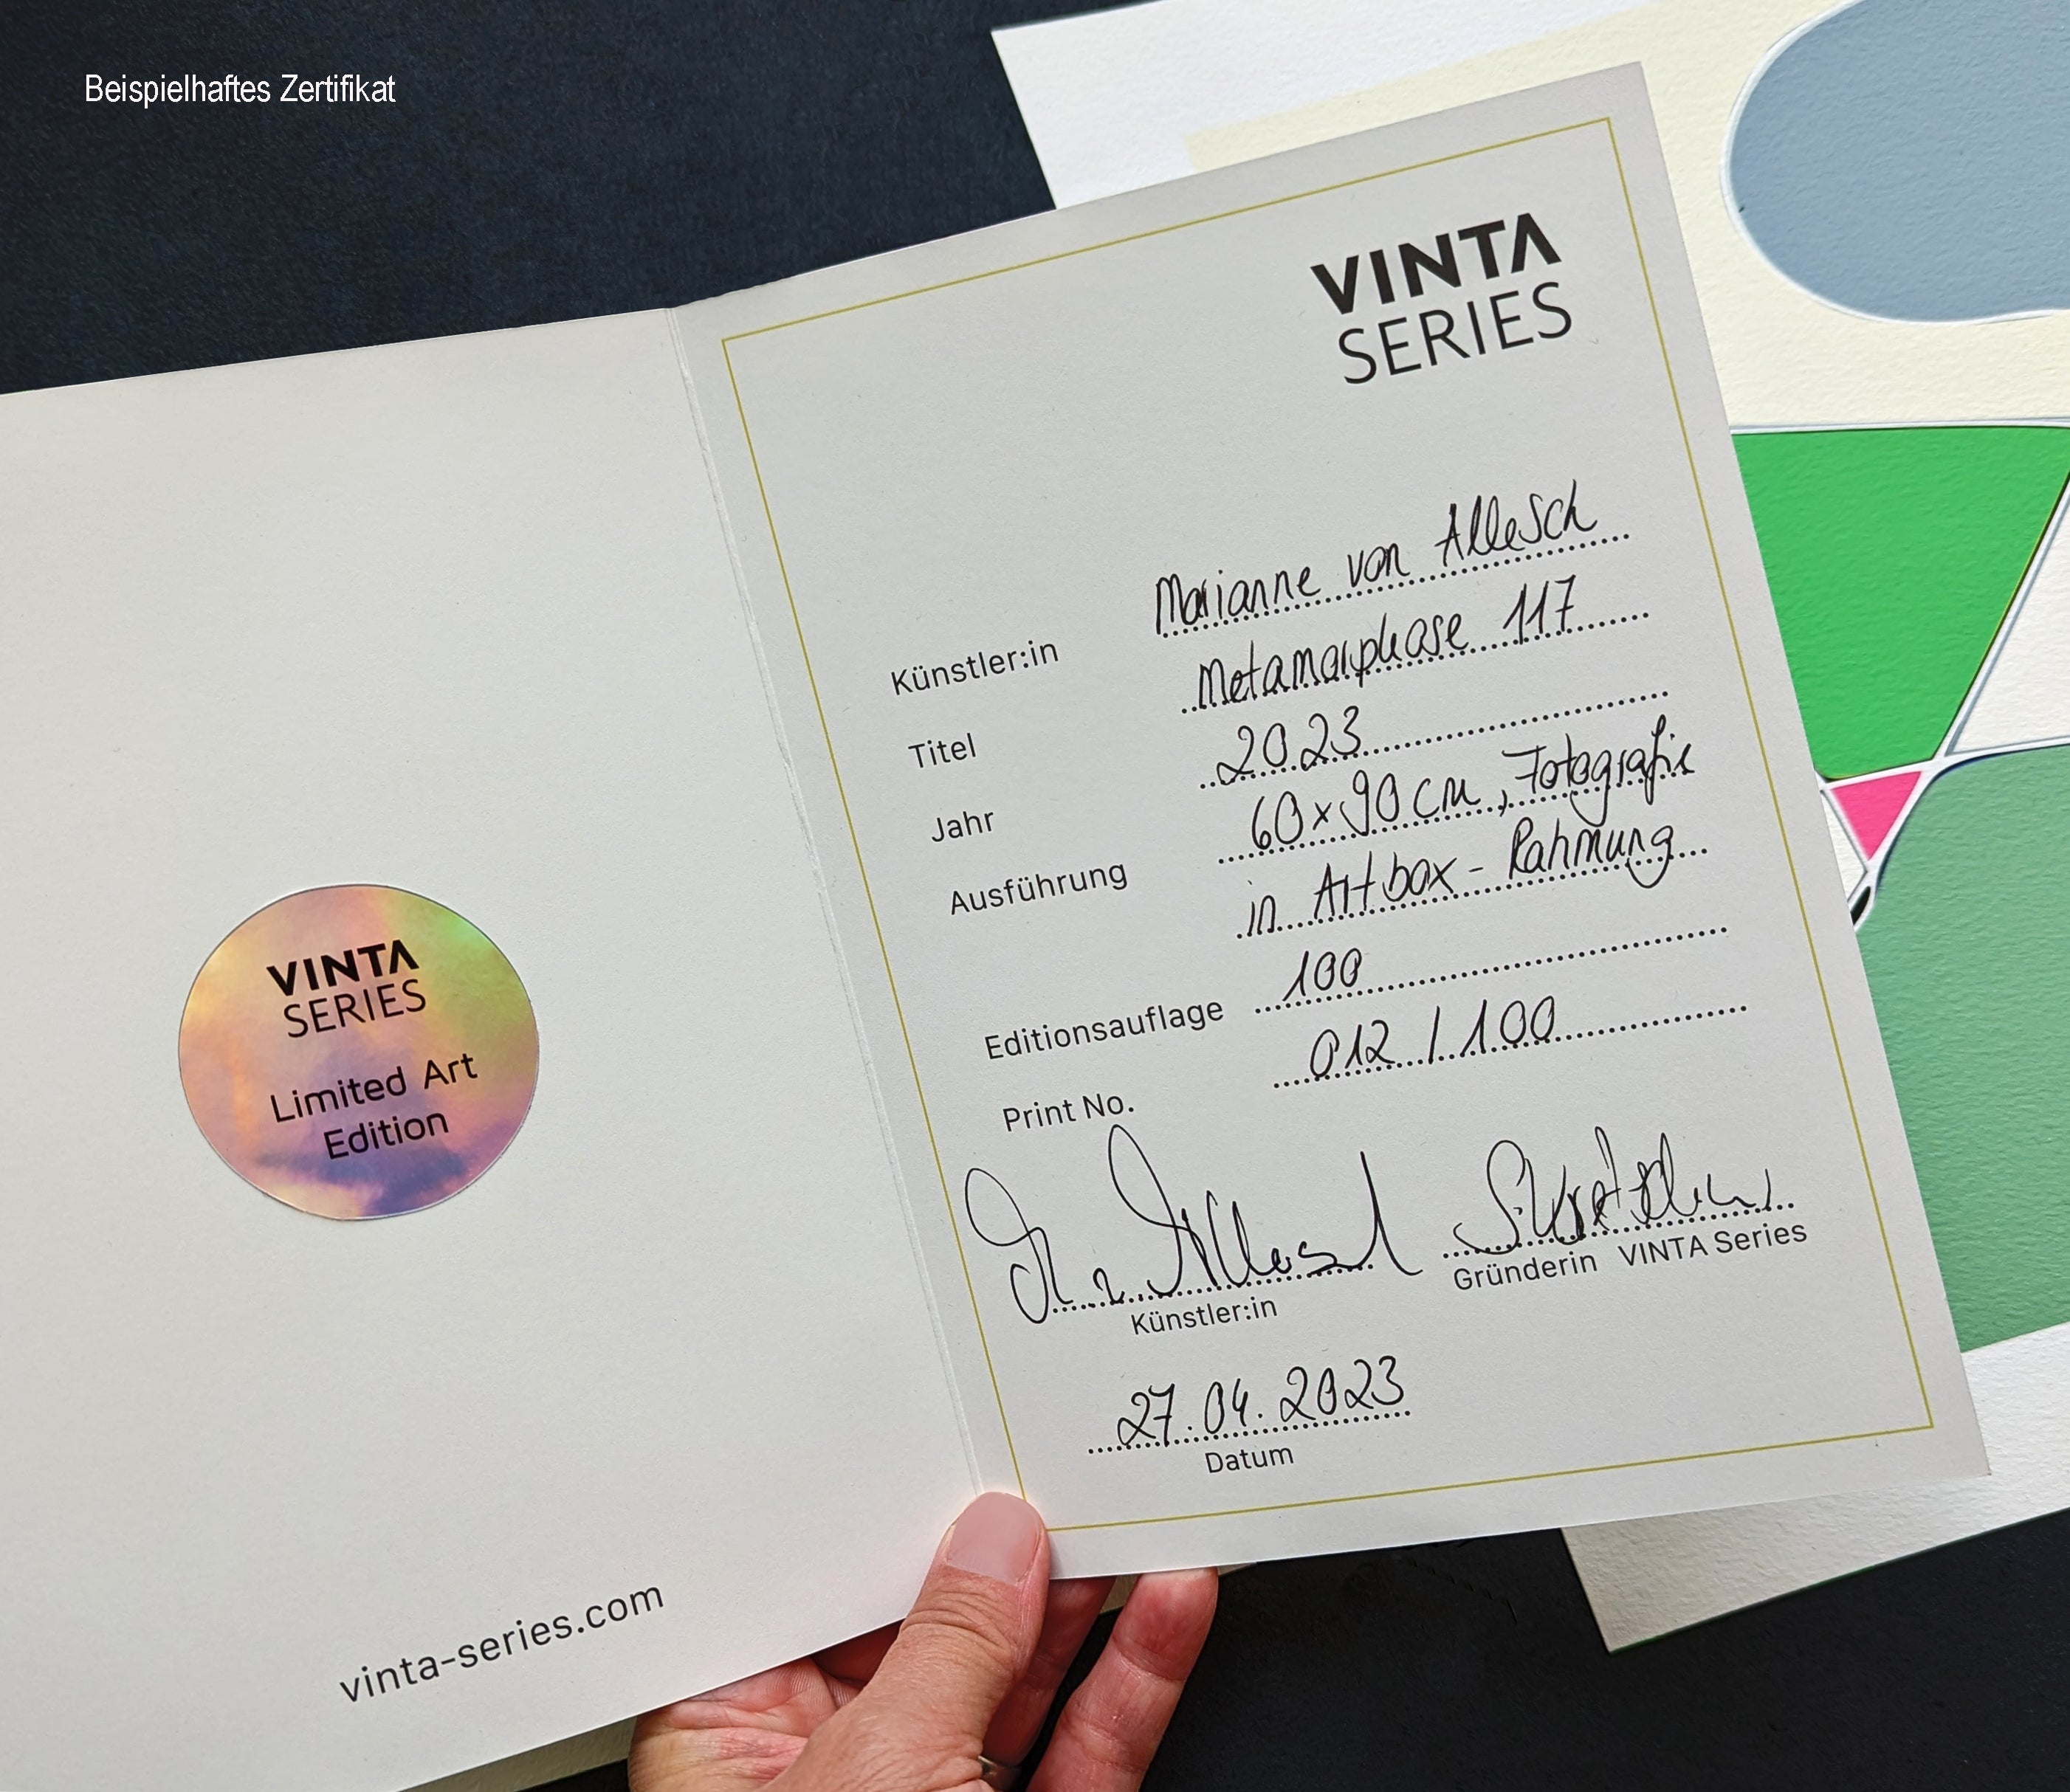 Beispielhaftes Zertifikat
VINTA
SERIES
Limited Art
Edition
vinta-series.com
VINTA
SERIES
Künstler:in Marianne von Allesch
Titel Metamorphose 117
Jahr 2023
Ausführung 60x90 cm, Fotografie
in Artbox - Rahmung
Editionsauflage 100
Print No. 012 / 100
Künstler:in
Gründerin VINTA Series
27.04.2023
Datum